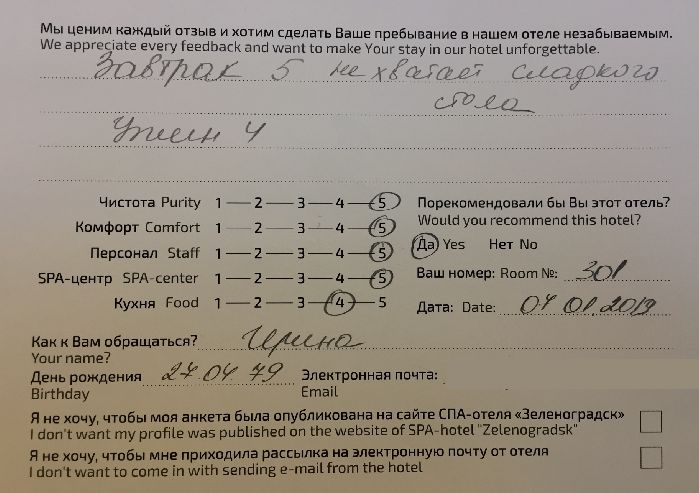 Мы ценим каждый отзыв и хотим сделать Ваше пребывание в нашем отеле незабываемым.
We appreciate every feedback and want to make Your stay in our hotel unforgettable.
Завтрак 5 не хватает сладкого
стола
Ужин 4
Чистота Purity 1 2 3 4 5
Комфорт Comfort 1 2 3 4 5
Персонал Staff 1 2 3 4 5
SPA-центр SPA-center 1 2 3 4 5
Кухня Food 1 2 3 4 5
Порекомендовали бы Вы этот отель?
Would you recommend this hotel?
Да Yes Нет No
Ваш номер: Room №: 301
Дата: Date: 04 01.2019
Как к Вам обращаться? Ирина
Your name?
День рождения 27.04.79 Электронная почта:
Birthday Email
Я не хочу, чтобы моя анкета была опубликована на сайте СПА-отеля «Зеленоградск»
I don't want my profile was published on the website of SPA-hotel "Zelenogradsk"
Я не хочу, чтобы мне приходила рассылка на электронную почту от отеля
I don't want to come in with sending e-mail from the hotel